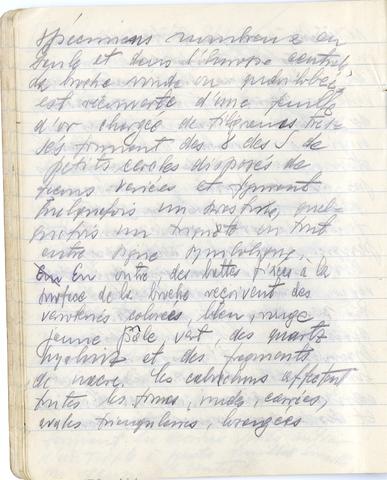 spécimens nombreux en
Gaule et dans l'Europe centrale
la broche ronde ou quadrilobée
est recouverte d'une feuille
d'or chargée de filigranes tres-
ses formant des 8 des S de
petits cercles disposés de
façons variées et formant
quelquefois un swastika, quel-
quefois un triquètre ou tout
autre signe symbolique.
En outre, des battes fixées à la
surface de la broche reçoivent des
verroteries colorées, bleu, rouge
jaune pâle, vert, des quartz
hyalins et des fragments
de nacre. les cabochons affectent
toutes les formes, rondes, carrées,
ovales triangulaires, losangées